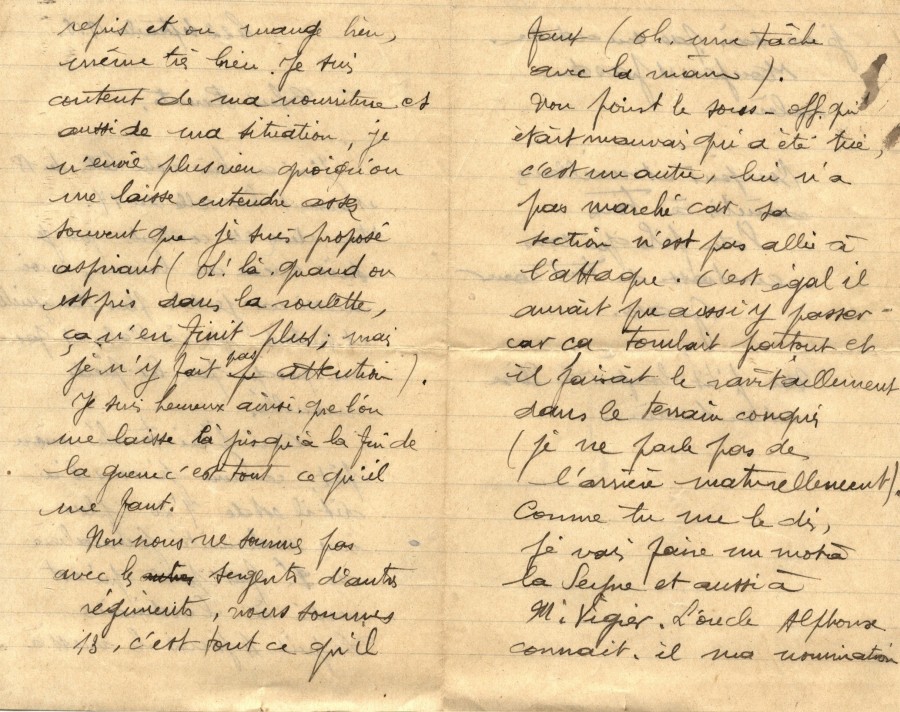 repris et on mange bien,
même très bien. Je suis
content de ma nourriture et
aussi de ma situation, je
n'envie plus rien quoiqu'on
me laisse entendre assez
souvent que je suis proposé
aspirant (oh! là. quand on
est pris dans la roulette,
ça n'en finit plus; mais
je n'y fait pas attention).
Je suis heureux ainsi. que l'on
me laisse là jusqu'à la fin de
la guerre c'est tout ce qu'il
me faut.
Non nous ne sommes pas
avec le sergents d'autres
régiments, nous sommes
13, c'est tout ce qu'il
faux (oh. une tâche
avec la main).
Non point le sous-off. qui
était mauvais qui a été tué,
c'est un autre, lui n'a
pas marché car sa
section n'est pas allée à
l'attaque. C'est égal il
aurait pu aussi y passer-
car ça tombait partout et
il faisait le ravitaillement
dans le terrain conquis
(je ne parle pas de
l'arrière naturellement).
Comme tu me le dis,
je vais faire un mot à
la Seyne et aussi à
Mr Vigier. L'oncle Alphonse
connait. il ma nomination